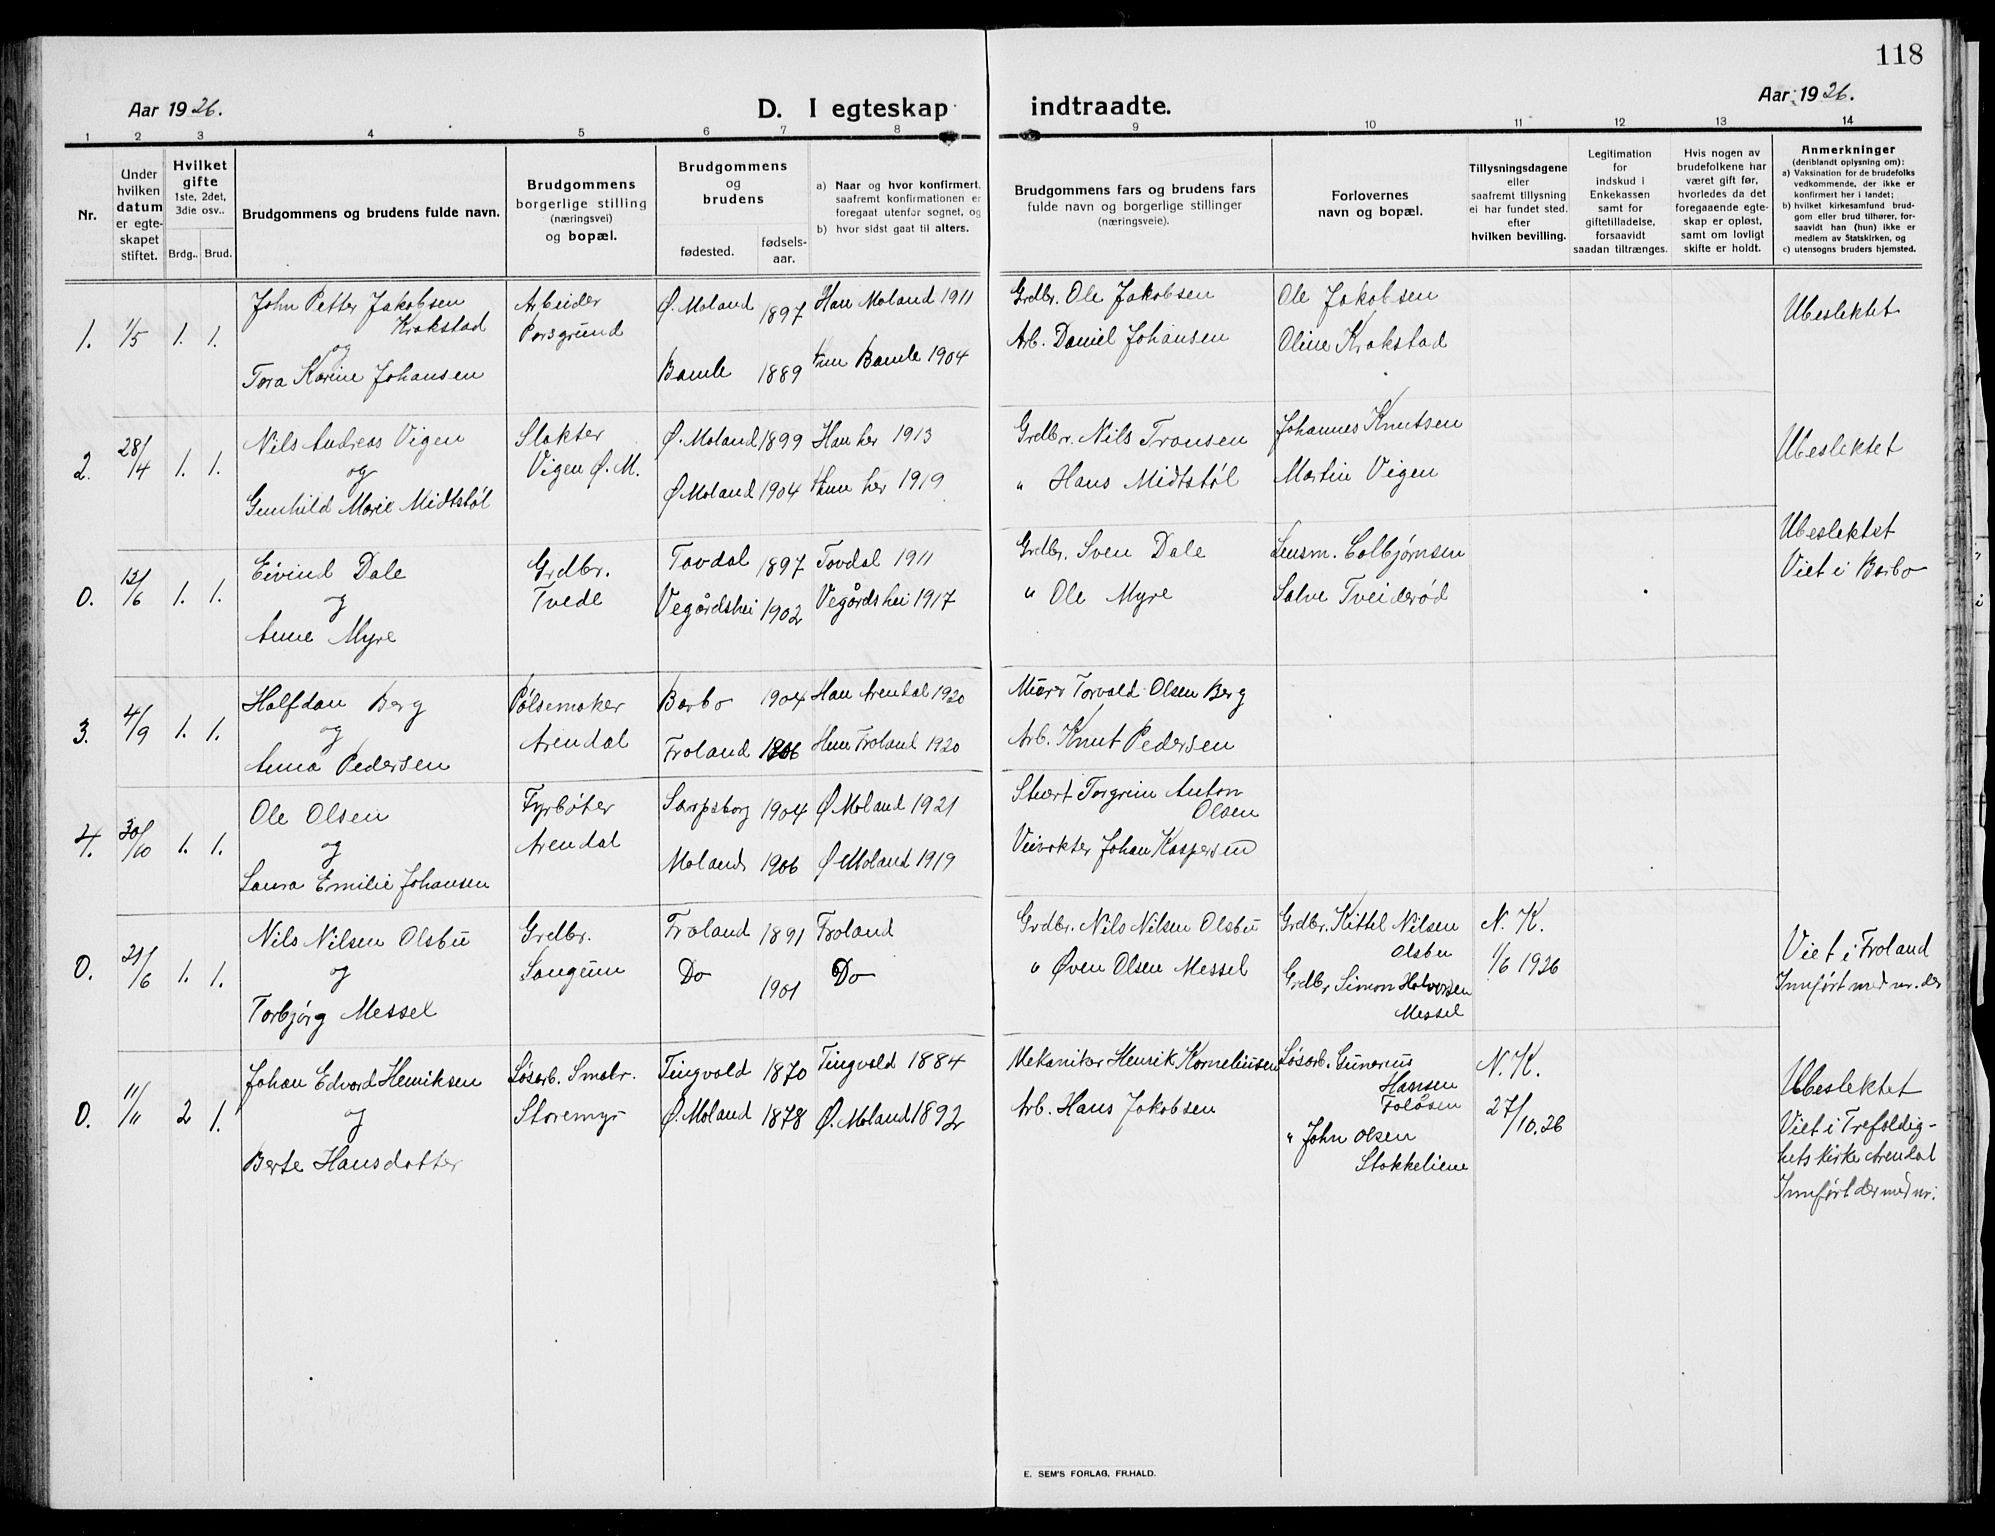 118
Aar 1926.
D. I egteskap indtraadte.
Aar 1926.
1 2 3 4 5 6 7 8 9 10 11 12 13 14
Nr.
Under hvilken datum er egteskapet stiftet.
Hvilket gifte 1ste, 2det, 3die osv..
Brdg.. Brud.
Brudgommens og brudens fulde navn.
Brudgommens borgerlige stilling (næringsvei) og bopæl.
Brudgommens og brudens
fødested. fødsels-aar.
a) Naar og hvor konfirmert, saafremt konfirmationen er foregaat utenfor sognet, og
b) hvor sidst gaat til alters.
Brudgommens fars og brudens fars fulde navn og borgerlige stillinger (næringsveie).
Forlovernes navn og bopæl.
Tillysningsdagene eller saafremt tillysning ei har fundet sted. efter hvilken bevilling.
Legitimation for indskud i Enkekassen samt for giftetilladelse, forsaavidt saadan tiltrænges.
Hvis nogen av brudefolkene har været gift før, hvorledes da det foregaaende egteskap er opløst, samt om lovligt skifte er holdt.
Anmerkninger
(deriblandt oplysning om):
a) Vaksination for de brudefolks vedkommende, der ikke er konfirmert her i landet;
b) hvilket kirkesamfund brudgom eller brud tilhører, forsaavidt han (hun) ikke er medlem av Statskirken, og
c) utensogns bruders hjemsted.
1. 1/5 1. 1.
John Petter Jakobsen
Krokstad
og
Tora Karine Johansen
Arbeider
Porsgrund
Ø. Moland 1897 Han Moland 1911
Bamle 1889 Hun Bamle 1904
Grdbr. Ole Jakobsen
Arb. Daniel Johansen
Ole Jakobsen
Oline Krokstad
Ubeslektet
2. 28/4 1. 1.
Nils Andreas Vigen
og
Gunhild Marie Midtstøl
Slakter
Vigen Ø. M.
Ø. Moland 1899 Han her 1913
Ø Moland 1904 Hun her 1919
Grdbr. Nils Tronsen
" Hans Midtstøl
Johannes Knutsen
Martin Vigen
Ubeslektet
0. 12/6 1. 1.
Eivind Dale
og
Anne Myre
Grdbr.
Tvede
Tovdal 1897 Tovdal 1911
Vegårdshei 1902 Vegårdshei 1917
Grdbr. Sven Dale
" Ole Myre
Lensm. Colbjørnsen
Salve Tveiderød
Ubeslektet
Viet i Barbo
3. 4/9 1. 1.
Halfdan Berg
og
Anna Pedersen
Pølsemaker
Arendal
Barbo 1904 Han Arendal 1920
Froland 1906 Hun Froland 1920
Murer Torvald Olsen Berg
Arb. Knut Pedersen
4. 30/10 1. 1.
Ole Olsen
og
Laura Emilie Johansen
Fyrbøter
Arendal
Sarpsborg 1904 Ø Moland 1921
Moland 1906 Ø Moland 1919
Stuert Torgrim Anton
Olsen
Veivokter Johan Kaspersen
0. 21/6 1. 1.
Nils Nilsen Olsbu
og
Torbjørg Messel
Grdbr.
Songum
Froland 1891 Froland
Do 1901 Do
Grdbr. Nils Nilsen Olsbu
" Øven Olsen Messel
Grdbr. Kittel Nilsen
Olsbu
Grdbr Simon Halvorsen
Messel
N. K.
1/6 1926
Viet i Froland
Innført med nr. der
0. 11/11 2 1.
Johan Edvard Henriksen
og
Berte Hansdatter
Løsarb. Smabr.
Storemyr
Tingvold 1870 Tingvold 1884
Ø. Moland 1878 Ø. Moland 1892
Mekaniker Henrik Korneliusen
Arb. Hans Jakobsen
Løsarb. Gunerius
Hansen
" John Olsen
Stokkeliene
N. K.
27/10.26
Ubeslektet
Viet i Trefoldig-
hets kirke Arendal
Innført der med nr.
E. SEM'S FORLAG, FR.HALD.